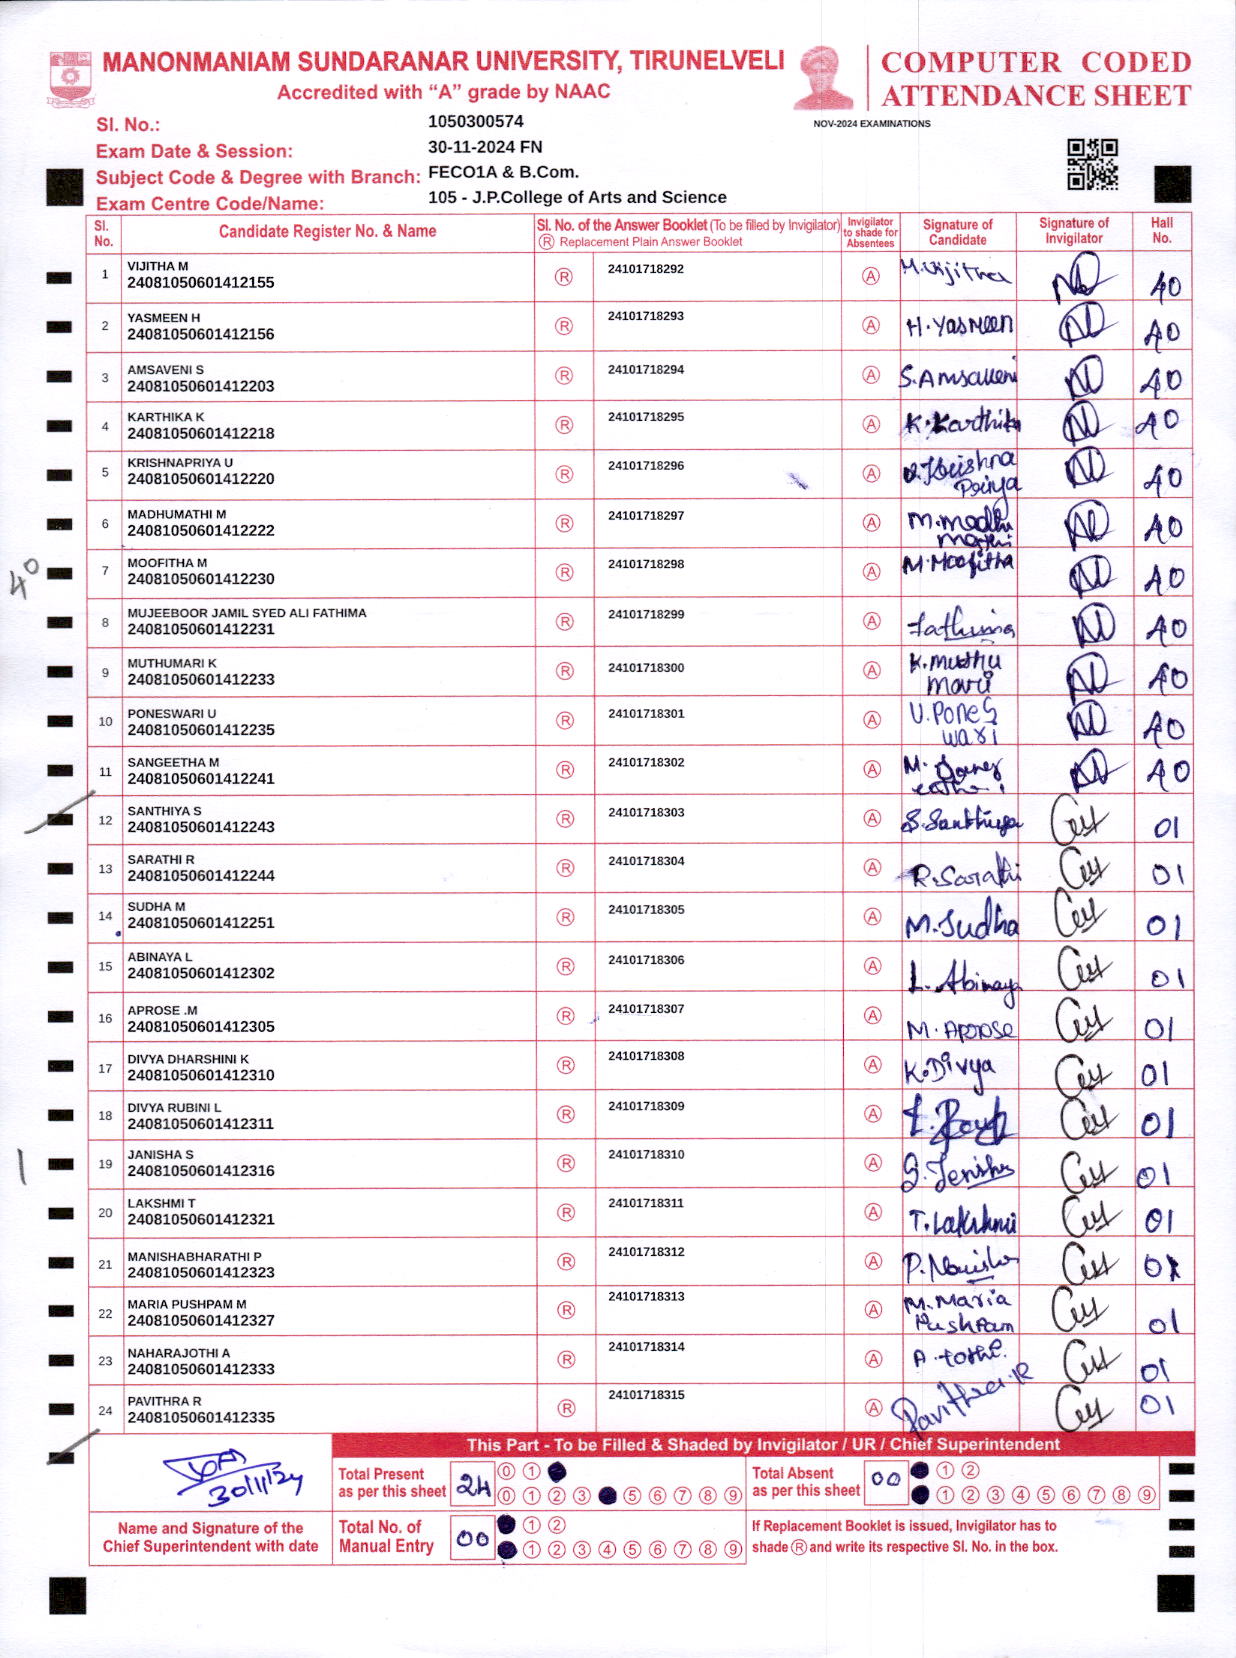 MANONMANIAM SUNDARANAR UNIVERSITY, TIRUNELVELI
Accredited with “A” grade by NAAC
COMPUTER CODED
ATTENDANCE SHEET
NOV-2024 EXAMINATIONS
Sl. No.: 1050300574
Exam Date & Session: 30-11-2024 FN
Subject Code & Degree with Branch: FECO1A & B.Com.
Exam Centre Code/Name: 105 - J.P.College of Arts and Science
Sl. No. Candidate Register No. & Name Sl. No. of the Answer Booklet (To be filled by Invigilator) Ⓡ Replacement Plain Answer Booklet Invigilator to shade for Absentees Signature of Candidate Signature of Invigilator Hall No.
1 VIJITHA M 24081050601412155 Ⓡ 24101718292 Ⓐ M.Vijitha 40
2 YASMEEN H 24081050601412156 Ⓡ 24101718293 Ⓐ H.Yasmeen 40
3 AMSAVENI S 24081050601412203 Ⓡ 24101718294 Ⓐ S.Amsaveni 40
4 KARTHIKA K 24081050601412218 Ⓡ 24101718295 Ⓐ K.Karthika 40
5 KRISHNAPRIYA U 24081050601412220 Ⓡ 24101718296 Ⓐ 40
6 MADHUMATHI M 24081050601412222 Ⓡ 24101718297 Ⓐ M.Madhu mathi 40
40
7 MOOFITHA M 24081050601412230 Ⓡ 24101718298 Ⓐ M.Moofitha 40
8 MUJEEBOOR JAMIL SYED ALI FATHIMA 24081050601412231 Ⓡ 24101718299 Ⓐ Fathima 40
9 MUTHUMARI K 24081050601412233 Ⓡ 24101718300 Ⓐ K.Muthu mari 40
10 PONESWARI U 24081050601412235 Ⓡ 24101718301 Ⓐ U.Pones wari 40
11 SANGEETHA M 24081050601412241 Ⓡ 24101718302 Ⓐ 40
12 SANTHIYA S 24081050601412243 Ⓡ 24101718303 Ⓐ S.Santhiya 01
13 SARATHI R 24081050601412244 Ⓡ 24101718304 Ⓐ R.Sarathi 01
14 SUDHA M 24081050601412251 Ⓡ 24101718305 Ⓐ M.Sudha 01
15 ABINAYA L 24081050601412302 Ⓡ 24101718306 Ⓐ L.Abinaya 01
16 APROSE .M 24081050601412305 Ⓡ 24101718307 Ⓐ M.Aprose 01
17 DIVYA DHARSHINI K 24081050601412310 Ⓡ 24101718308 Ⓐ K.Divya 01
18 DIVYA RUBINI L 24081050601412311 Ⓡ 24101718309 Ⓐ 01
1
19 JANISHA S 24081050601412316 Ⓡ 24101718310 Ⓐ S.Jenisha 01
20 LAKSHMI T 24081050601412321 Ⓡ 24101718311 Ⓐ T.Lakshmi 01
21 MANISHABHARATHI P 24081050601412323 Ⓡ 24101718312 Ⓐ P.Manisha 01
22 MARIA PUSHPAM M 24081050601412327 Ⓡ 24101718313 Ⓐ M.Maria Pushpam 01
23 NAHARAJOTHI A 24081050601412333 Ⓡ 24101718314 Ⓐ 01
24 PAVITHRA R 24081050601412335 Ⓡ 24101718315 Ⓐ Pavithra.R 01
This Part - To be Filled & Shaded by Invigilator / UR / Chief Superintendent
30/11/24
Name and Signature of the
Chief Superintendent with date
Total Present as per this sheet 24
0 1
0 1 2 3 5 6 7 8 9
Total Absent as per this sheet 00
1 2
1 2 3 4 5 6 7 8 9
Total No. of Manual Entry 00
1 2
1 2 3 4 5 6 7 8 9
If Replacement Booklet is issued, Invigilator has to
shade Ⓡ and write its respective Sl. No. in the box.